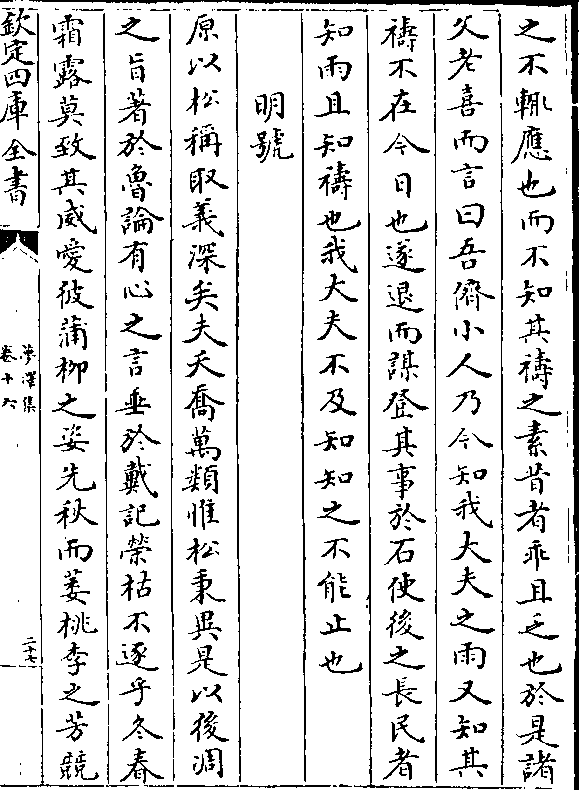 之不輙應也而不知其禱之素昔者乖且乏也於是諸
父老喜而言曰吾儕小人乃今知我大夫之雨又知其
禱不在今日也遂退而謀登其事於石使後之長民者
知雨且知禱也我大夫不及知知之不能止也
明號
原以松稱取義深矣夫夭喬萬類惟松秉異是以後凋
之旨著於魯論有心之言垂於戴記榮枯不逐乎冬春
霜露莫致其威愛彼蒲柳之姿先秋而萎桃李之芳競
欽定四庫全書
夢澤集
卷十六
二十七